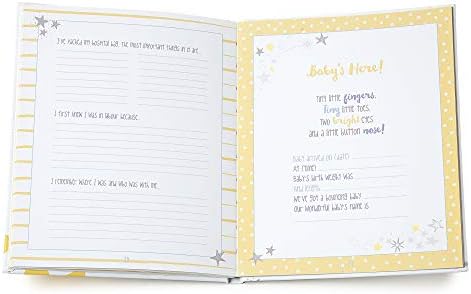 I've packed my hospital bag. The most important things in it are:
I first knew I was in labour because:
I remember where I was and who was with me:
Baby's Here!
Tiny little fingers,
Tiny little toes,
Two bright eyes
and a little button nose!
Baby arrived on (date)
At (time)
Baby's birth weight was
And length
We've got a bouncing baby
Our wonderful baby's name is